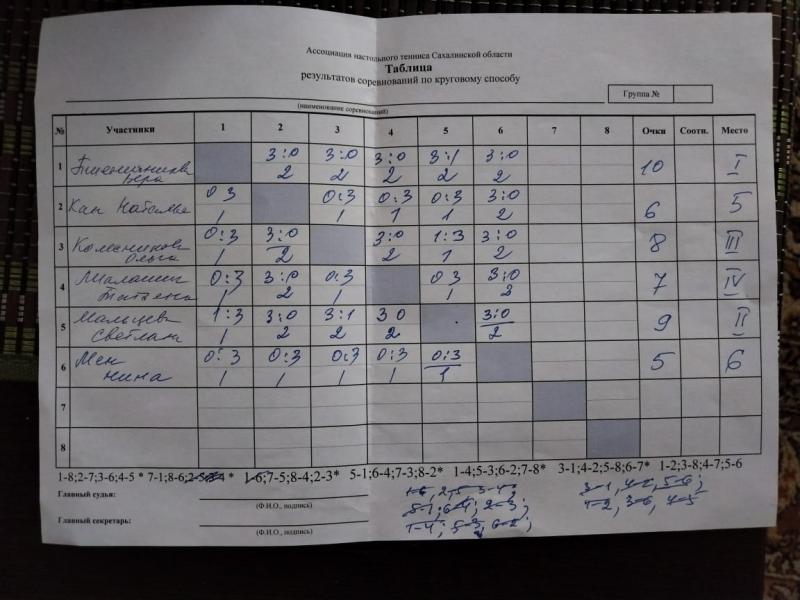 Ассоциация настольного тенниса Сахалинской области
Таблица
результатов соревнований по круговому способу
Группа №
(наименование соревнований)
№ Участники 1 2 3 4 5 6 7 8 Очки Соотн. Место
1 3:0 3:0 3:0 3:1 3:0
Вера 2 2 2 2 2 10 I
2 Кан Наталья 0 3 0:3 0:3 0:3 3:0
1 1 1 1 2 6 5
3 Колесникова 0:3 3:0 3:0 1:3 3:0
Ольга 1 2 2 1 2 8 III
4 0:3 3:0 0:3 0 3 3:0
Татьяна 1 2 1 1 2 7 IV
5 Мальцева 1:3 3:0 3:1 3 0 3:0
Светлана 1 2 2 2 2 9 II
6 Мен 0:3 0:3 0:3 0:3 0:3
Нина 1 1 1 1 1 5 6
7
8
1-8;2-7;3-6;4-5 * 7-1;8-6;2-5;3-4 * 1-6;7-5;8-4;2-3* 5-1;6-4;7-3;8-2* 1-4;5-3;6-2;7-8* 3-1;4-2;5-8;6-7* 1-2;3-8;4-7;5-6
Главный судья:
(Ф.И.О., подпись)
Главный секретарь:
(Ф.И.О., подпись)
1-6, 2-5 3-4,
5-1; 6-4; 2-3;
1-4, 5-3, 6-2;
3-1, 4-2, 5-6;
1-2, 3-6, 4-5